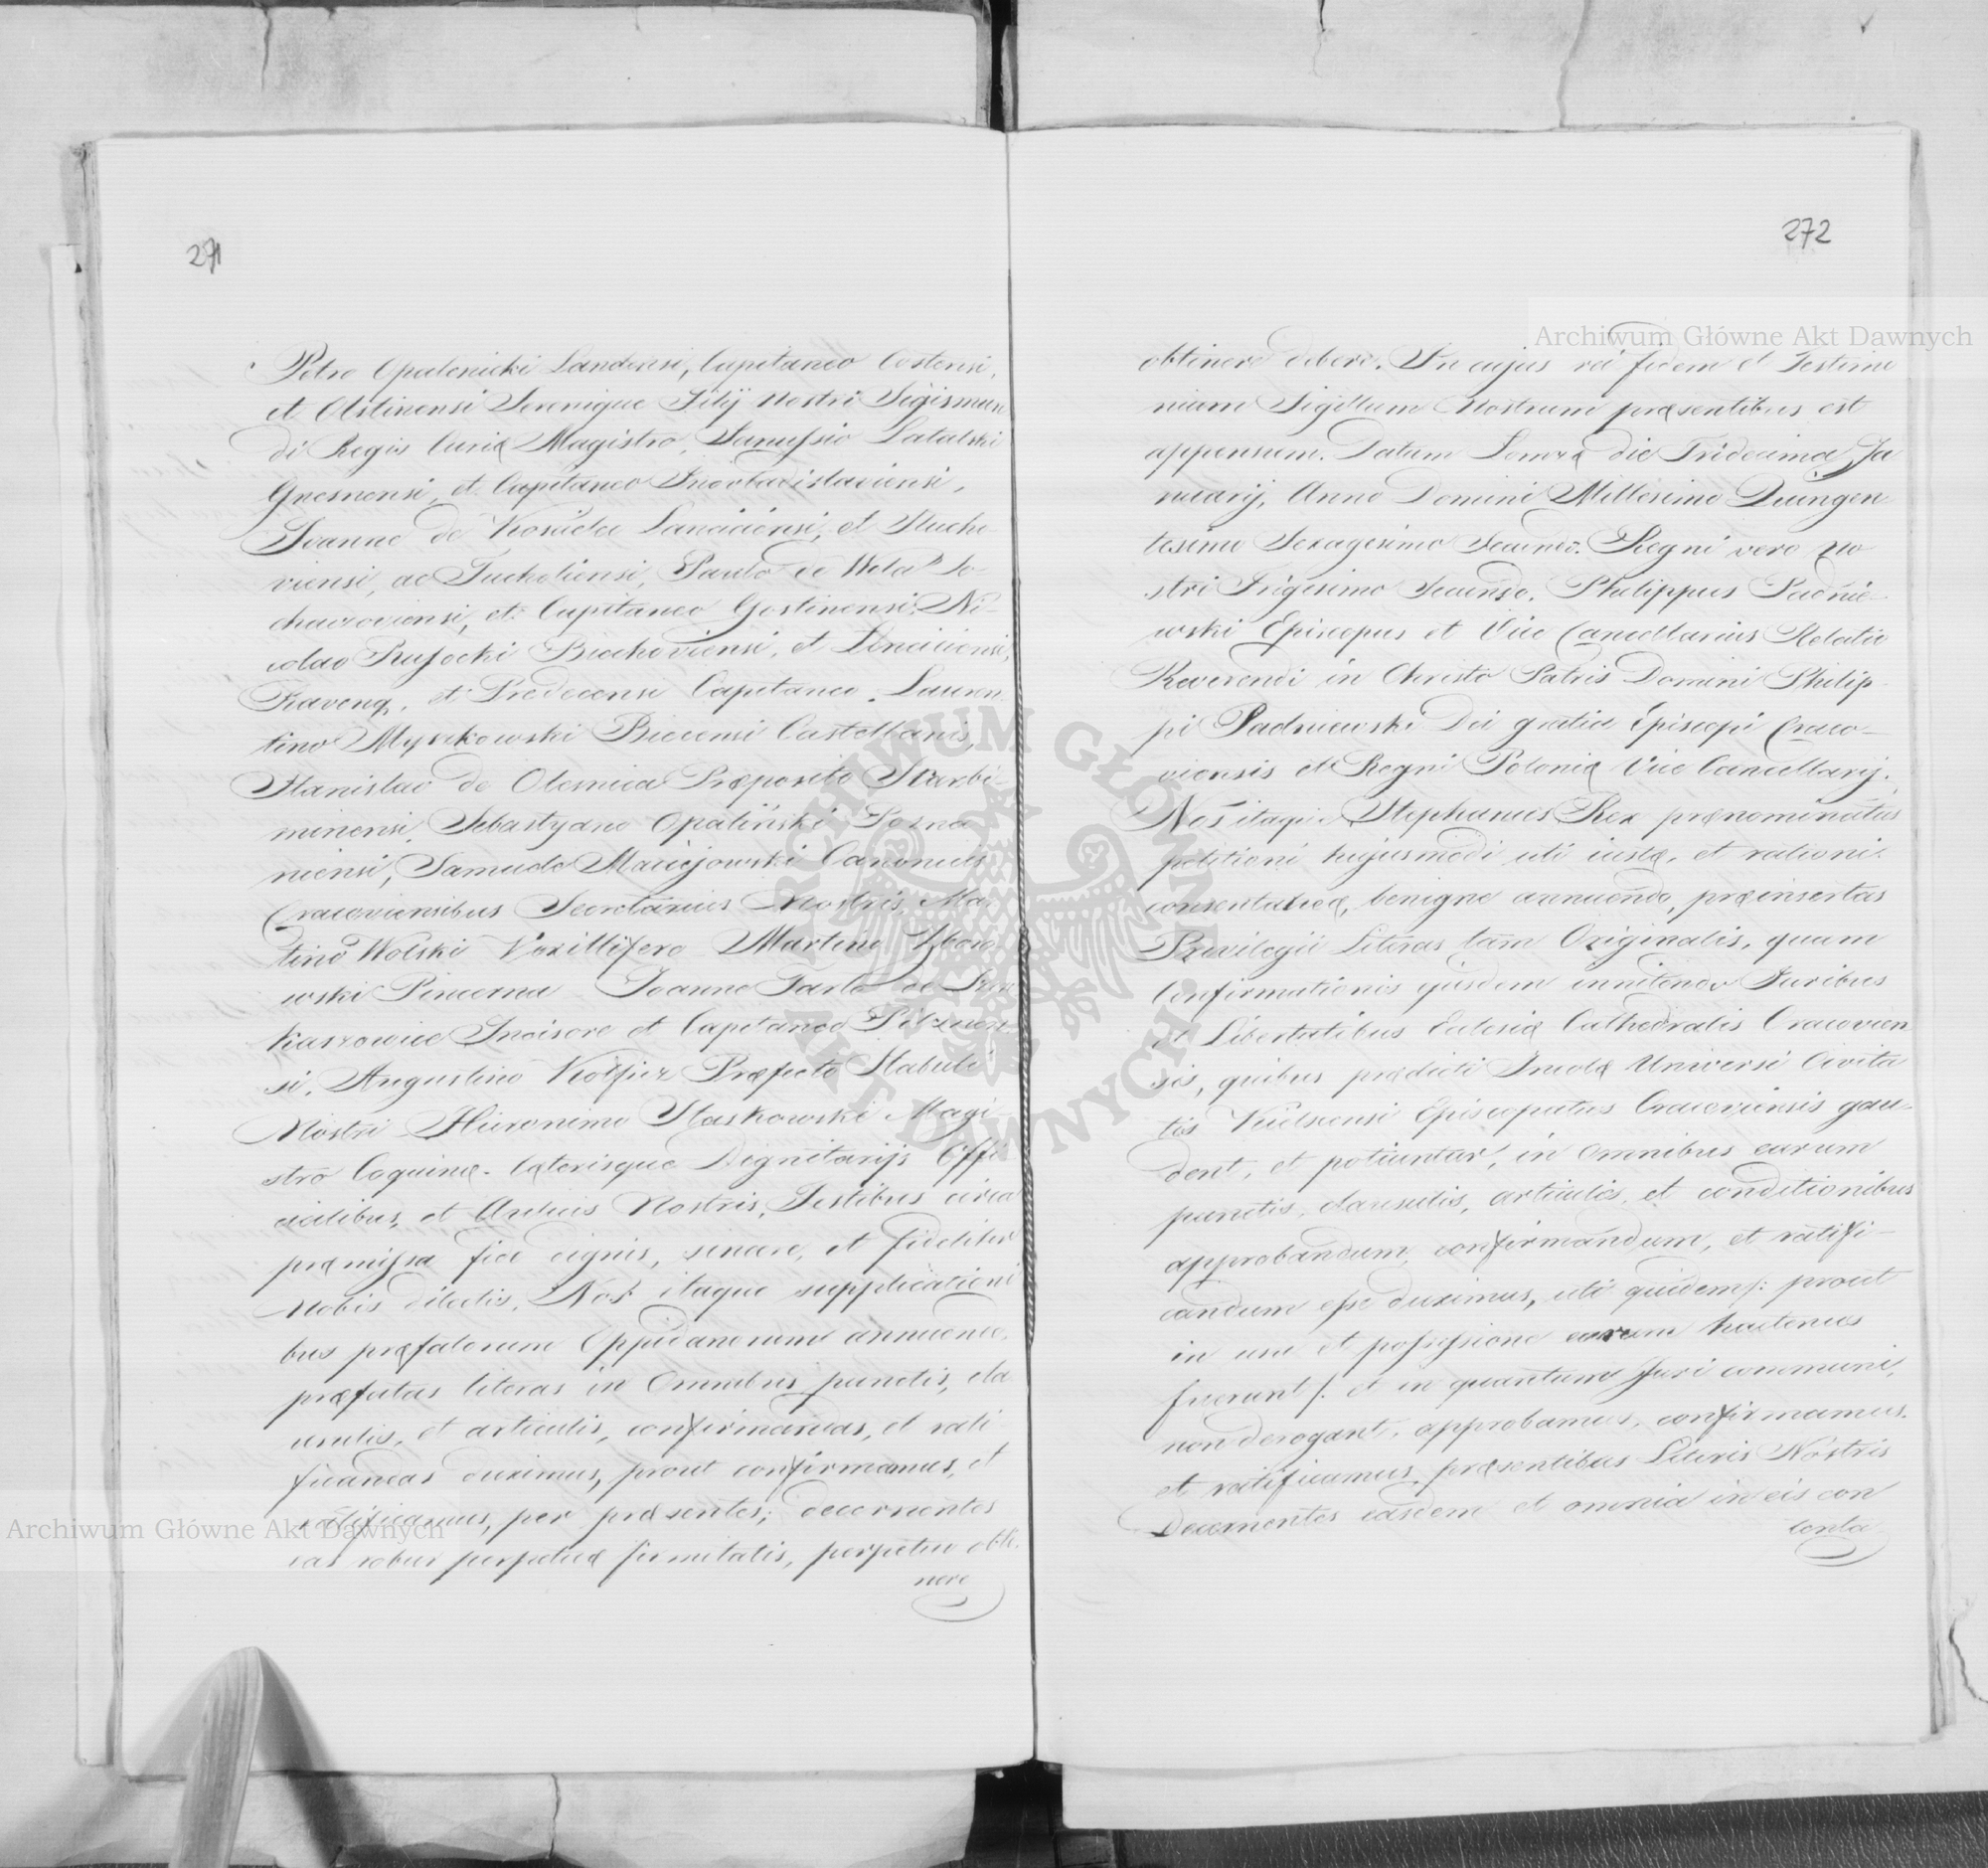 271
Petro Opalenicki Landensi, Capitaneo Costensi,
et Olstinensi Serenique Filij Nostri Sigismun
di Regis Curiæ Magistro, Janussio Latalski
Gnesnensi, et Capitaneo Inowladislaviensi,
Joanne de Lanciciensi, et Slucho
viensi, ac Tucholiensi, Paulo de Wola So
chaczoviensi, et Capitaneo Gostinensi, Ni-
colao Rusocki Biechoviensi, et Lenciciensi,
et Predecensi Capitaneo. Lauren
tino Myszkowski Biecensi Castellanis,
Stanislao de Olesnica Præposito Skarbi-
miriensi, Sebastyano Opaliński Pozna
niensi, Samuele Maciejowski Canonicis
Cracoviensibus Secretariis Nostris, Ma
tino Wolski Vexillifero Martino Zboro
wski Pincerna Joanne Tarlo de
karzowice Incisore et Capitaneo Pilznen
si, Augustino Kotficz Præfecto Stabuli
Nostri Hieronimo Magi-
stro Coquinæ. Cæterisque Dignitarijs Offi
cialibus, et Aulicis Nostris, Testibus circa
præmissa fide dignis, sincere, et fideliter
Nobis dilectis, Nos itaque supplicationi
bus præfatorum Oppidanorum annuendo,
præfatas literas in Omnibus punctis, cla
usulis, et articulis, confirmandas, et rati
ficandas duximus, prout confirmamus, et
ratificamus, per præsentes; decernentes
eas robur perpetuæ firmitatis, perpetuo obti
nere
272
obtinere debere. In cujus rei fidem et Testimo
nium Sigillum Nostrum præsentibus est
appensum. Datum Lomzæ die Tridecima Ja
nuarij, Anno Domini Millesimo Quingen
tesimo Sexagesimo Secundo. Regni vero no
stri Trigesimo Secundo. Philippus Padnie-
wski Episcopus et Vice Cancellarius Relatio
Reverendi in Christo Patris Domini Philip
pi Padniewski Dei gratia Episcopi Craco-
viensis et Regni Poloniæ Vice Cancellarij.
Nos itaque Stephanus Rex prænominatus
petitioni hujusmodi uti iustæ, et rationi
consentaneæ, benigne annuendo, præinsertas
Privilegii Literas tam Originalis, quam
Confirmationis ejusdem innitendo Juribus
et Libertatibus Eclesiæ Cathedralis Cracovien
sis, quibus prædicti Incolæ Universi Civita
tis Episcopatus Cracoviensis gau-
dent, et potiuntur, in Omnibus earum
punctis, clausulis, articulis, et conditionibus
approbandum, confirmandum, et ratifi-
candum esse duximus, uti quidem /: prout
in usu et possessione earum hactenus
fuerunt /: et in quantum Juri communi,
non derogant, approbamus, confirmamus.
et ratificamus præsentibus Literis Nostris
Decernentes easdem et omnia in eis con
tenta
Archiwum Główne Akt Dawnych
Archiwum Główne Akt Dawnych
ARCHIWUM GŁÓWNE AKT DAWNYCH